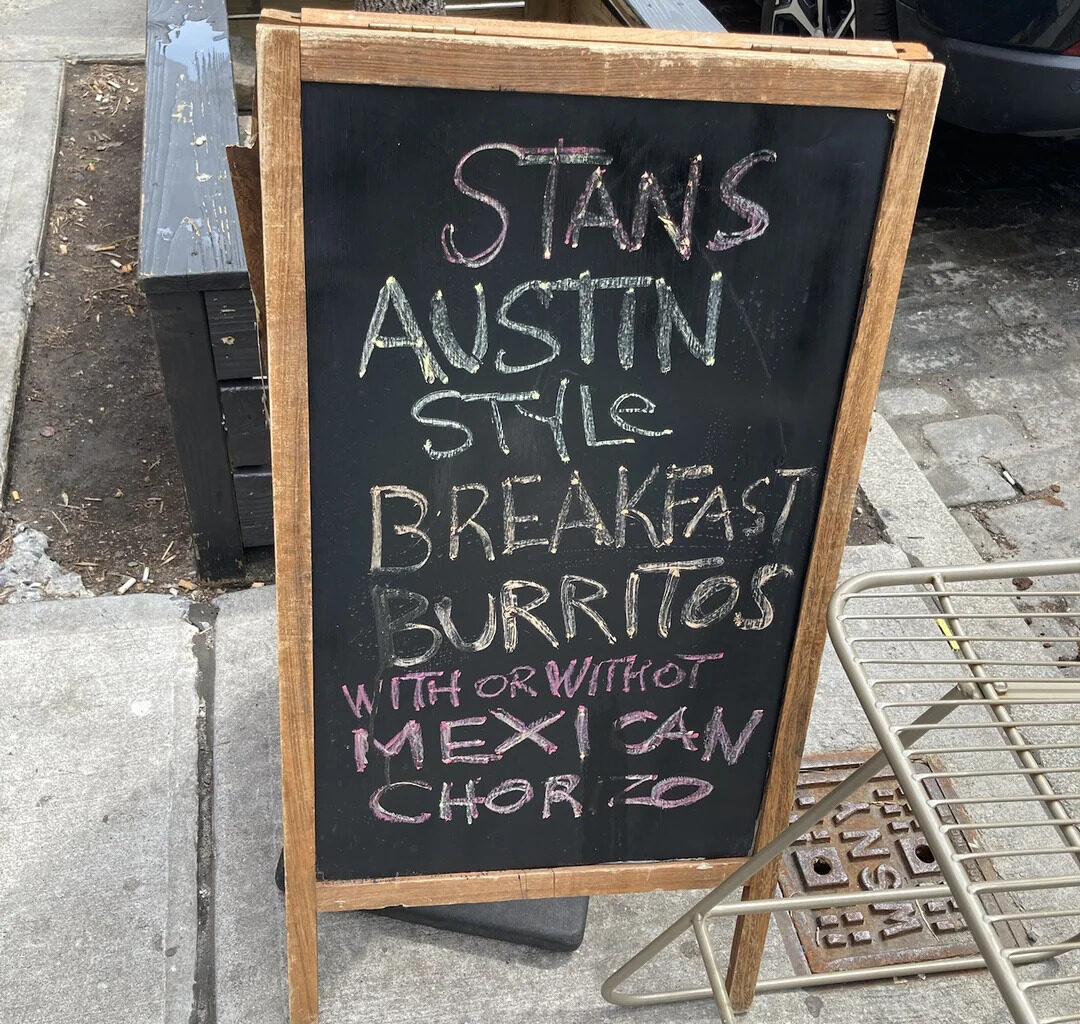 STANS
AUSTIN
STYLe
BREAKFAST
BURRITOS
WITH OR WITHOT
MEXICAN
CHOR ZO
NYSW